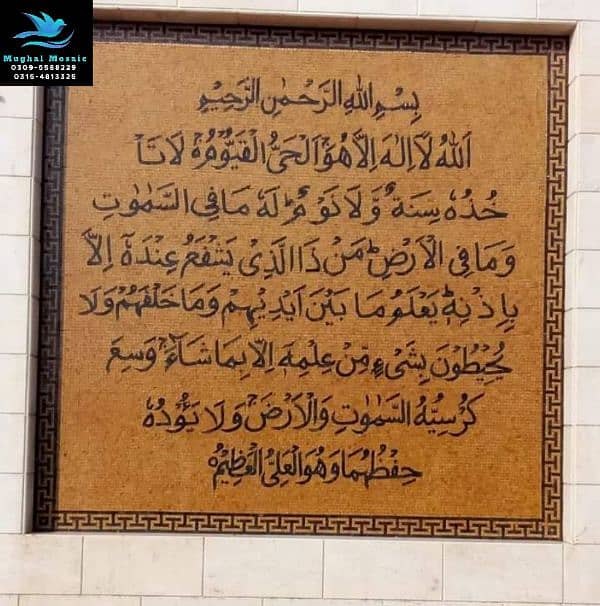 Mughal Mosaic
0309-5588229
0315-4813325
بِسْمِ اللهِ الرَّحْمٰنِ الرَّحِيْمِ
اَللهُ لَآ اِلٰهَ اِلَّا هُوَ اَلْحَیُّ الْقَيُّوْمُ ۚ لَا تَاْ
خُذُهٗ سِنَةٌ وَّلَا نَوْمٌ ؕ لَهٗ مَا فِی السَّمٰوٰتِ
وَمَا فِی الْاَرْضِ ؕ مَنْ ذَا الَّذِیْ يَشْفَعُ عِنْدَهٗۤ اِلَّا
بِاِذْنِهٖ ؕ يَعْلَمُ مَا بَيْنَ اَيْدِيْهِمْ وَمَا خَلْفَهُمْ ۚ وَلَا
يُحِيْطُوْنَ بِشَیْءٍ مِّنْ عِلْمِهٖۤ اِلَّا بِمَا شَآءَ ۚ وَسِعَ
كُرْسِيُّهُ السَّمٰوٰتِ وَالْاَرْضَ ۚ وَلَا يَـُٔوْدُهٗ
حِفْظُهُمَا ۚ وَهُوَ الْعَلِیُّ الْعَظِيْمُ